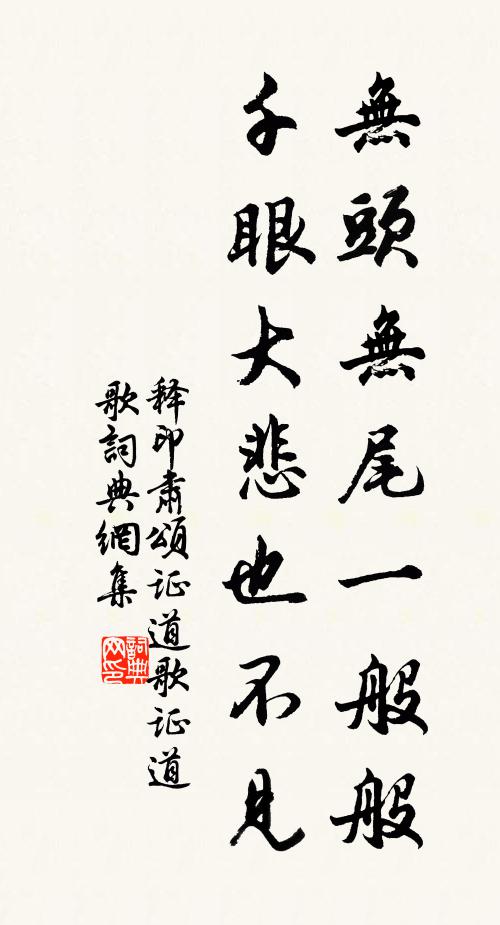 無頭無尾一般般
千眼大悲也不見
释印肅頌证道歌证道
歌詞典網集
詞典網印